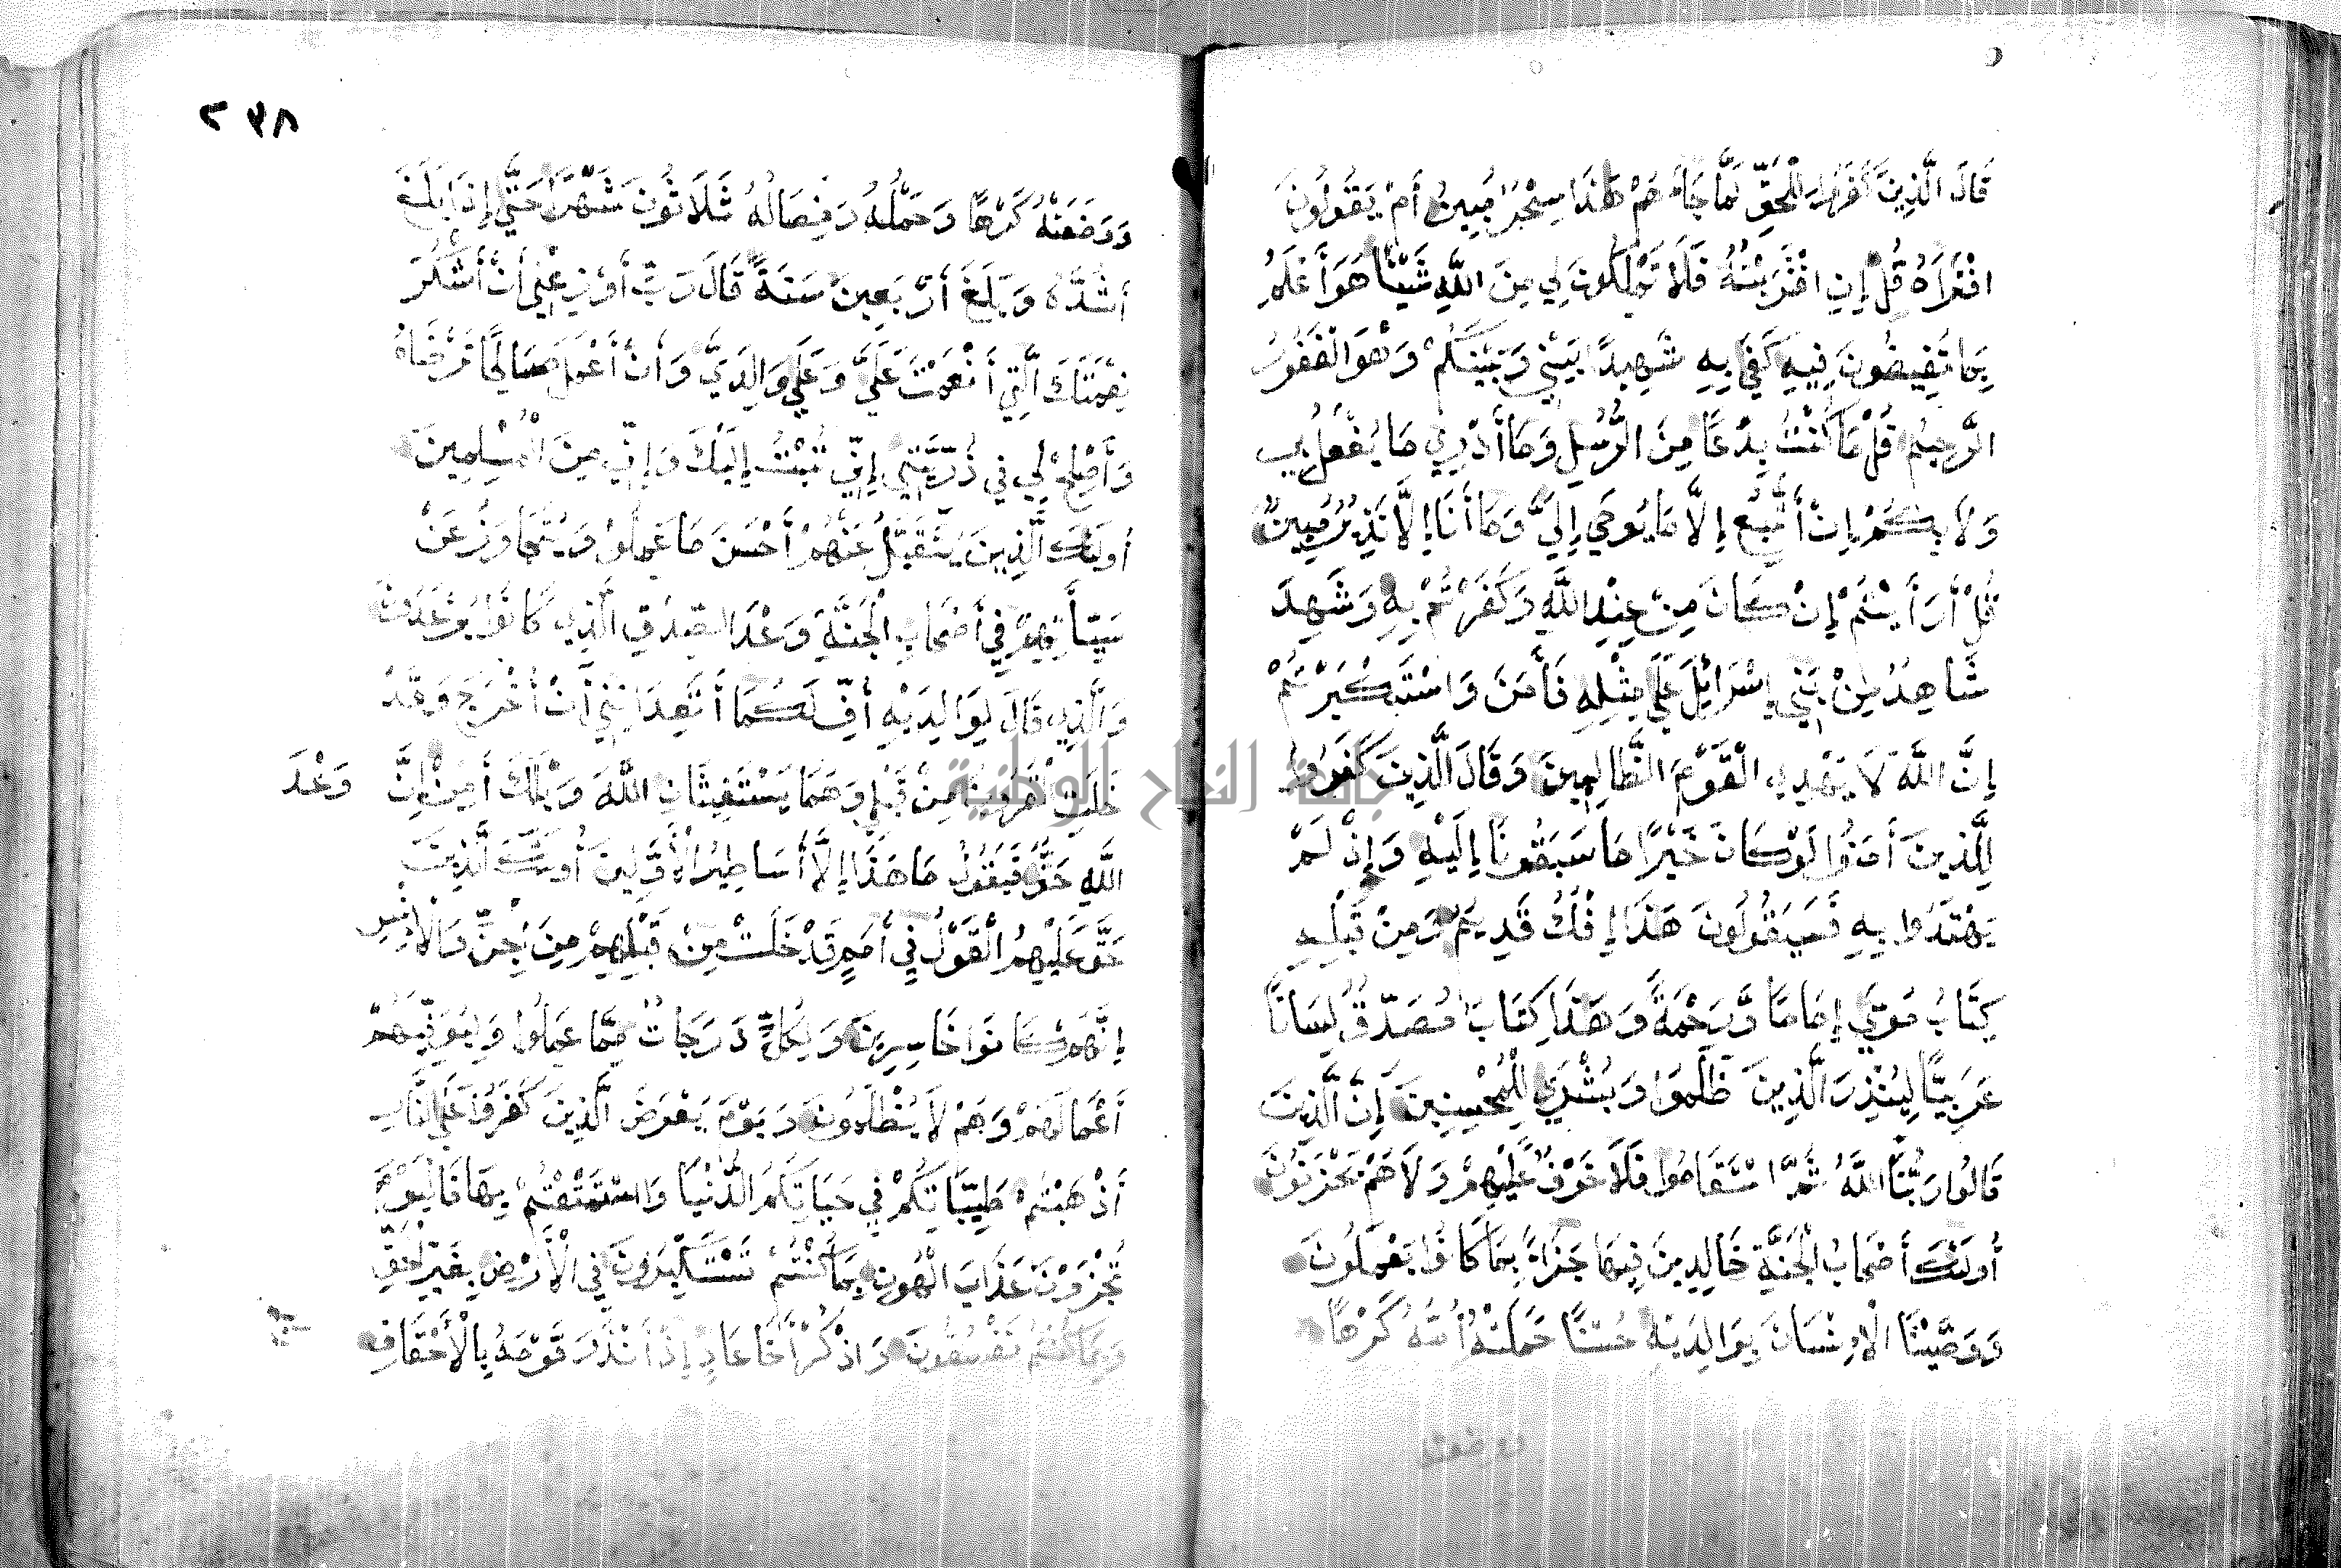 قَالَ الَّذِينَ كَفَرُوا لِلْحَقِّ لَمَّا جَاءَهُمْ هَذَا سِحْرٌ مُبِينٌ أَمْ يَقُولُونَ
افْتَرَاهُ قُلْ إِنِ افْتَرَيْتُهُ فَلَا تَمْلِكُونَ لِي مِنَ اللَّهِ شَيْئًا هُوَ أَعْلَمُ
بِمَا تُفِيضُونَ فِيهِ كَفَى بِهِ شَهِيدًا بَيْنِي وَبَيْنَكُمْ وَهُوَ الْغَفُورُ
الرَّحِيمُ قُلْ مَا كُنْتُ بِدْعًا مِنَ الرُّسُلِ وَمَا أَدْرِي مَا يُفْعَلُ بِي
وَلَا بِكُمْ إِنْ أَتَّبِعُ إِلَّا مَا يُوحَى إِلَيَّ وَمَا أَنَا إِلَّا نَذِيرٌ مُبِينٌ
قُلْ أَرَأَيْتُمْ إِنْ كَانَ مِنْ عِنْدِ اللَّهِ وَكَفَرْتُمْ بِهِ وَشَهِدَ
شَاهِدٌ مِنْ بَنِي إِسْرَائِلَ عَلَى مِثْلِهِ فَأَمَنَ وَاسْتَكْبَرْتُمْ
إِنَّ اللَّهَ لَا يَهْدِي الْقَوْمَ الظَّالِمِينَ وَقَالَ الَّذِينَ كَفَرُوا
لِلَّذِينَ أَمَنُوا لَوْ كَانَ خَيْرًا مَا سَبَقُونَا إِلَيْهِ وَإِذْ لَمْ
يَهْتَدُوا بِهِ فَسَيَقُولُونَ هَذَا إِفْكٌ قَدِيمٌ وَمِنْ قَبْلِهِ
كِتَابُ مُوسَى إِمَامًا وَرَحْمَةً وَهَذَا كِتَابٌ مُصَدِّقٌ لِسَانًا
عَرَبِيًّا لِيُنْذِرَ الَّذِينَ ظَلَمُوا وَبُشْرَى لِلْمُحْسِنِينَ إِنَّ الَّذِينَ
قَالُوا رَبُّنَا اللَّهُ ثُمَّ اسْتَقَامُوا فَلَا خَوْفٌ عَلَيْهِمْ وَلَا هُمْ يَحْزَنُونَ
أُولَئِكَ أَصْحَابُ الْجَنَّةِ خَالِدِينَ فِيهَا جَزَاءً بِمَا كَانُوا يَعْمَلُونَ
وَوَصَّيْنَا الْإِنْسَانَ بِوَالِدَيْهِ حُسْنًا حَمَلَتْهُ أُمُّهُ كَرْهًا
٢٣٨
وَوَضَعَتْهُ كَرْهًا وَحَمْلُهُ وَفِصَالُهُ ثَلَاثُونَ شَهْرًا حَتَّى إِذَا بَلَغَ
أَشُدَّهُ وَبَلَغَ أَرْبَعِينَ سَنَةً قَالَ رَبِّ أَوْزِعْنِي أَنْ أَشْكُرَ
نِعْمَتَكَ الَّتِي أَنْعَمْتَ عَلَيَّ وَعَلَى وَالِدَيَّ وَأَنْ أَعْمَلَ صَالِحًا تَرْضَاهُ
وَأَصْلِحْ لِي فِي ذُرِّيَّتِي إِنِّي تُبْتُ إِلَيْكَ وَإِنِّي مِنَ الْمُسْلِمِينَ
أُولَئِكَ الَّذِينَ يُتَقَبَّلُ عَنْهُمْ أَحْسَنَ مَا عَمِلُوا وَيُتَجَاوَزُ عَنْ
سَيِّأَتِهِمْ فِي أَصْحَابِ الْجَنَّةِ وَعْدَ الصِّدْقِ الَّذِي كَانُوا يُوعَدُونَ
وَالَّذِي قَالَ لِوَالِدَيْهِ أُفٍّ لَكُمَا أَتَعِدَانِنِي أَنْ أُخْرَجَ وَقَدْ
خَلَتِ الْقُرُونُ مِنْ قَبْلِي وَهُمَا يَسْتَغِيثَانِ اللَّهَ وَيْلَكَ أَمِنْ إِنَّ وَعْدَ
اللَّهِ حَقٌّ فَيَقُولُ مَا هَذَا إِلَّا أَسَاطِيرُ الْأَوَّلِينَ أُولَئِكَ الَّذِينَ
حَقَّ عَلَيْهِمُ الْقَوْلُ فِي أُمَمٍ قَدْ خَلَتْ مِنْ قَبْلِهِمْ مِنَ الْجِنِّ وَالْإِنْسِ
إِنَّهُمْ كَانُوا خَاسِرِينَ وَلِكُلٍّ دَرَجَاتٌ مِمَّا عَمِلُوا وَلِيُوَفِّيَهُمْ
أَعْمَالَهُمْ وَهُمْ لَا يُظْلَمُونَ وَيَوْمَ يُعْرَضُ الَّذِينَ كَفَرُوا عَلَى النَّارِ
أَذْهَبْتُمْ طَيِّبَاتِكُمْ فِي حَيَاتِكُمُ الدُّنْيَا وَاسْتَمْتَعْتُمْ بِهَا فَالْيَوْمَ
تُجْزَوْنَ عَذَابَ الْهُونِ بِمَا كُنْتُمْ تَسْتَكْبِرُونَ فِي الْأَرْضِ بِغَيْرِ الْحَقِّ
وَبِمَا كُنْتُمْ تَفْسُقُونَ وَاذْكُرْ أَخَا عَادٍ إِذْ أَنْذَرَ قَوْمَهُ بِالْأَحْقَافِ
جامعة النجاح الوطنية